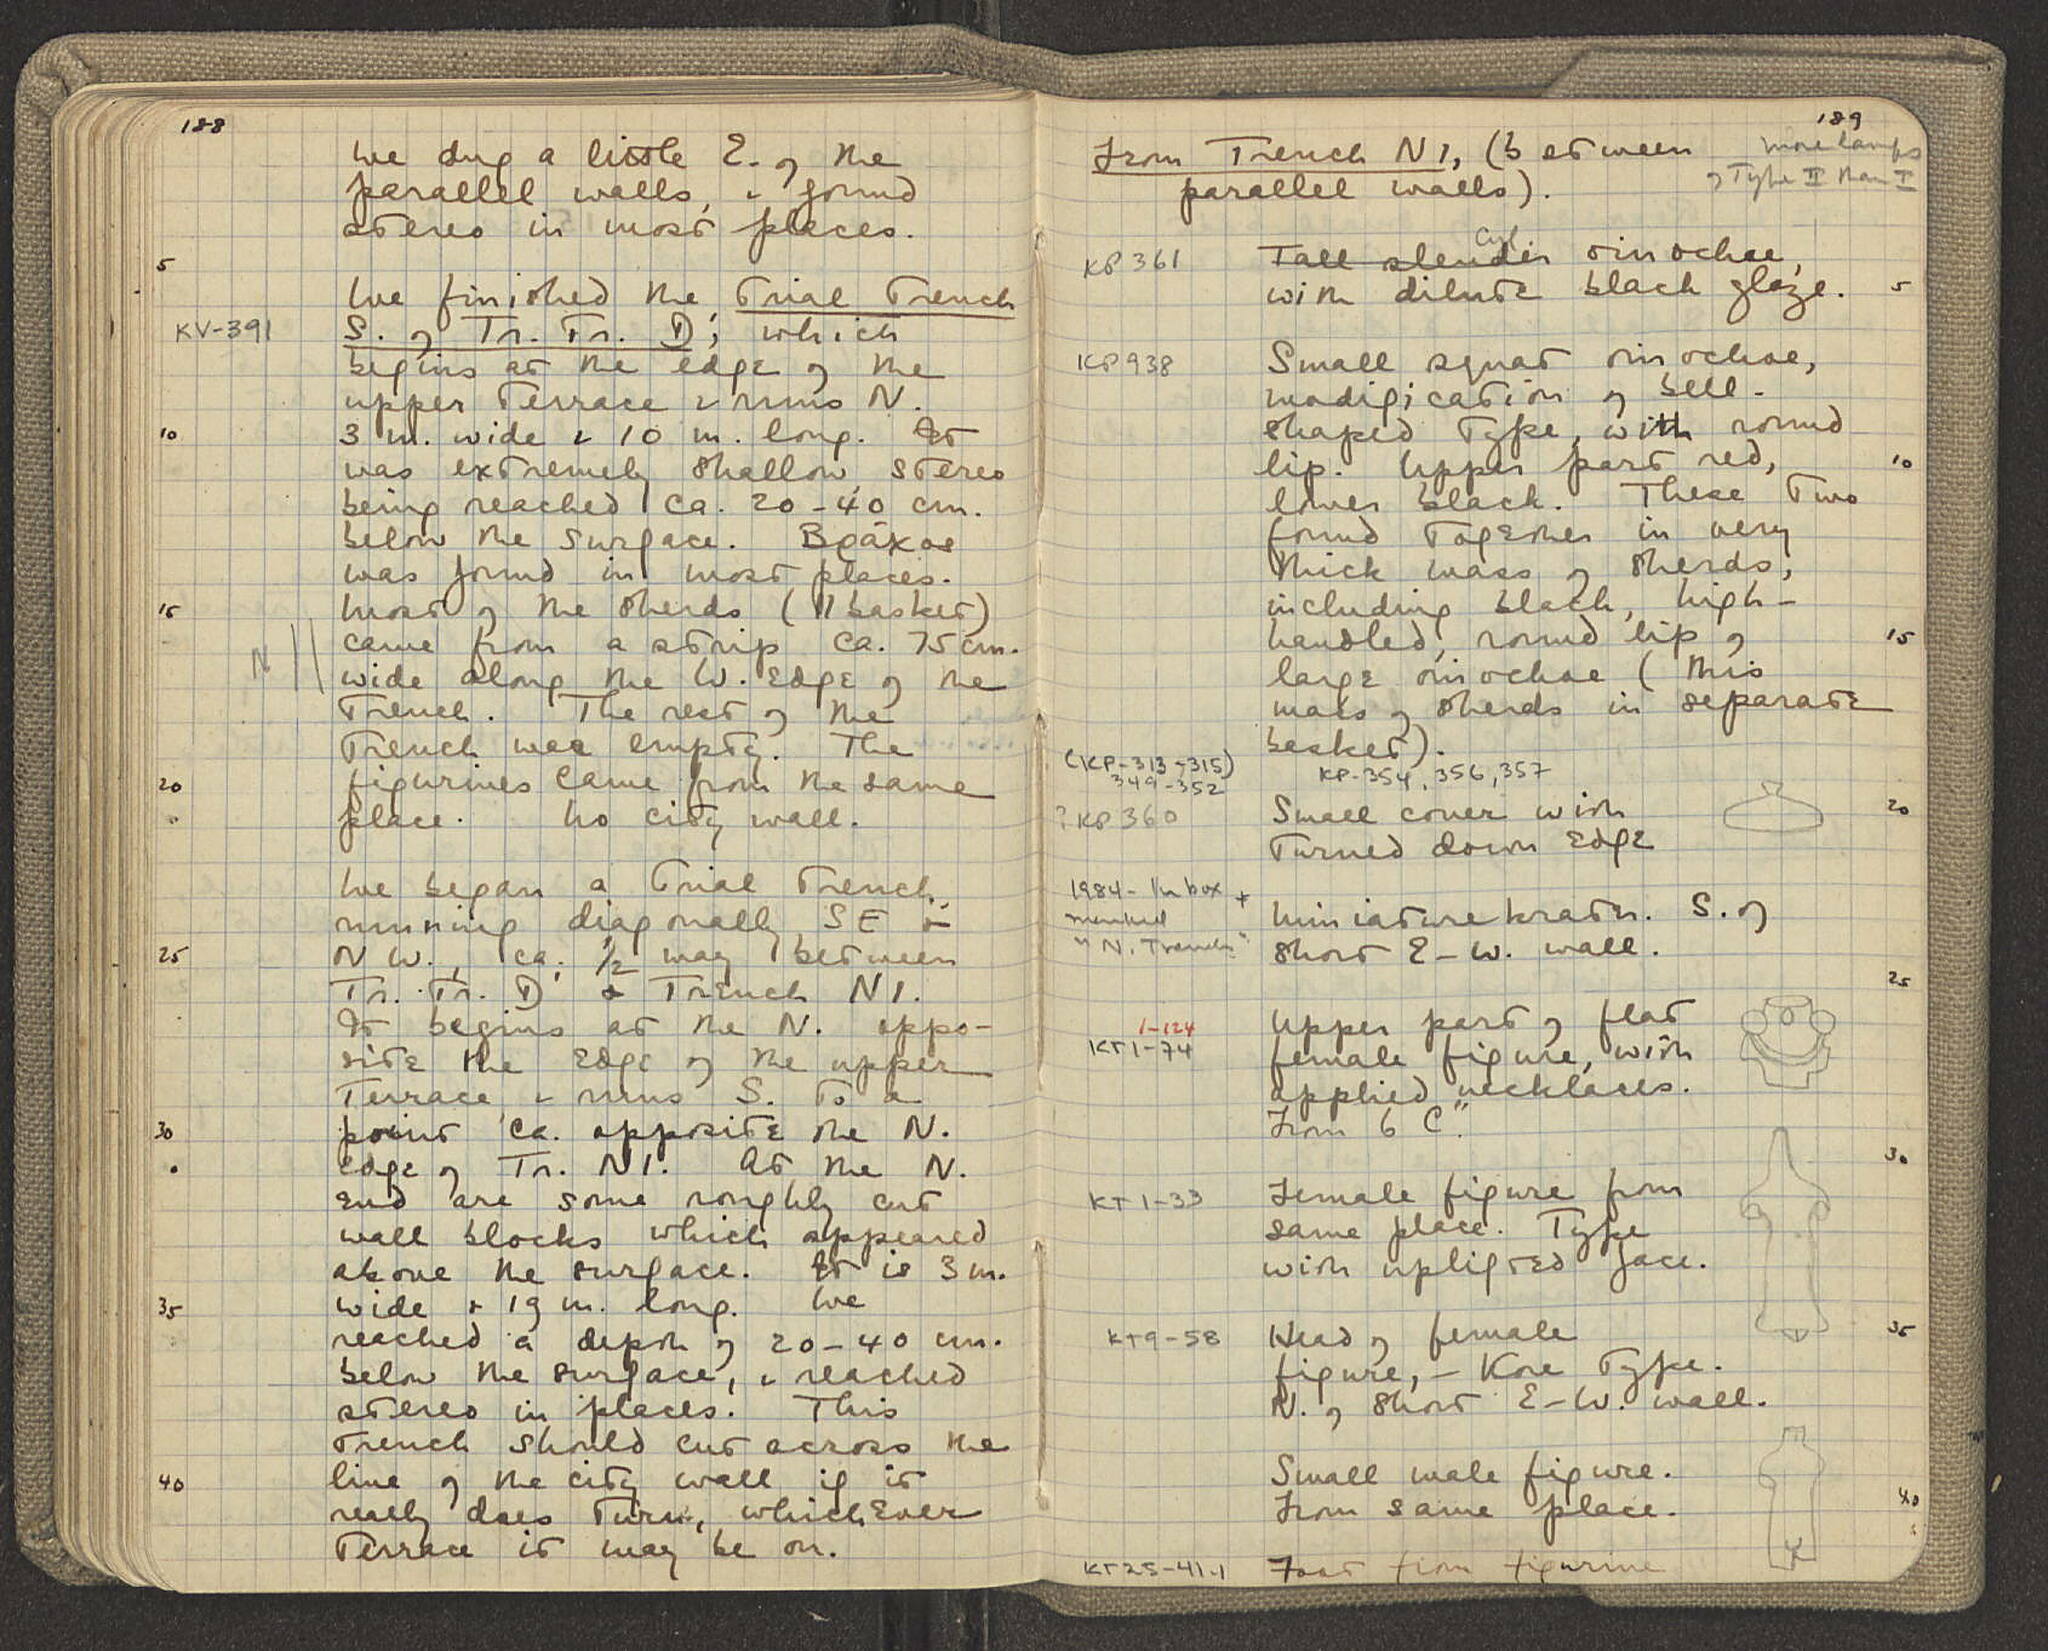 188
We dug a little E. of the
parallel walls, & found
stereo in most places.
5
We finished the trial trench
KV-391 S. of Tr. Tr. D, which
begins at the edge of the
upper terrace & runs N.
10 3 m. wide & 10 m. long. It
was extremely shallow, stereo
being reached ca. 20-40 cm.
below the surface. Βράχος
was found in most places.
15 Most of the sherds (1 basket)
came from a strip ca. 75 cm.
N wide along the W. edge of the
trench. The rest of the
trench was empty. The
20 figurines came from the same
place. No city wall.
We began a trial trench,
running diagonally SE &
25 NW., ca. 1/2 way between
Tr. Tr. D & Trench N1.
It begins at the N. oppo-
site the edge of the upper
terrace, & runs S. to a
30 point ca. opposite the N.
edge of Tr. N1. At the N.
end are some roughly cut
wall blocks which appeared
above the surface. It is 3 m.
35 wide & 19 m. long. We
reached a depth of 20-40 cm.
below the surface, & reached
stereo in places. This
trench should cut across the
40 line of the city wall if it
really does turn, whichever
terrace it may be on.
189
From Trench N1, (between more lamps
parallel walls). of Type II than I
cyl
KP 361 Tall slender oinochoe,
with dilute black glaze. 5
KP 938 Small squat oinochoe,
modification of bell-
shaped type, with round
lip. Upper part red, 10
lower black. These two
found together in very
thick mass of sherds,
including black, high-
handled, round lip of 15
large oinochoe (this
mass of sherds in separate
basket).
(KP-313-315) KP-354, 356, 357
349-352
? KP 360 Small cover with 20
turned down edge
1984- In box +
marked Miniature krater. S. of
"N. Trench" short E-W. wall.
25
1-124 Upper part of flat
KT1-74 female figure, with
applied necklaces.
From 6 C".
30
KT 1-33 Female figure from
same place. Type
with uplifted face.
KT9-58 Head of female 35
figure, - Kore type.
N. of short E-W. wall.
Small male figure.
From same place. 40
KT25-41.1 Foot from figurine